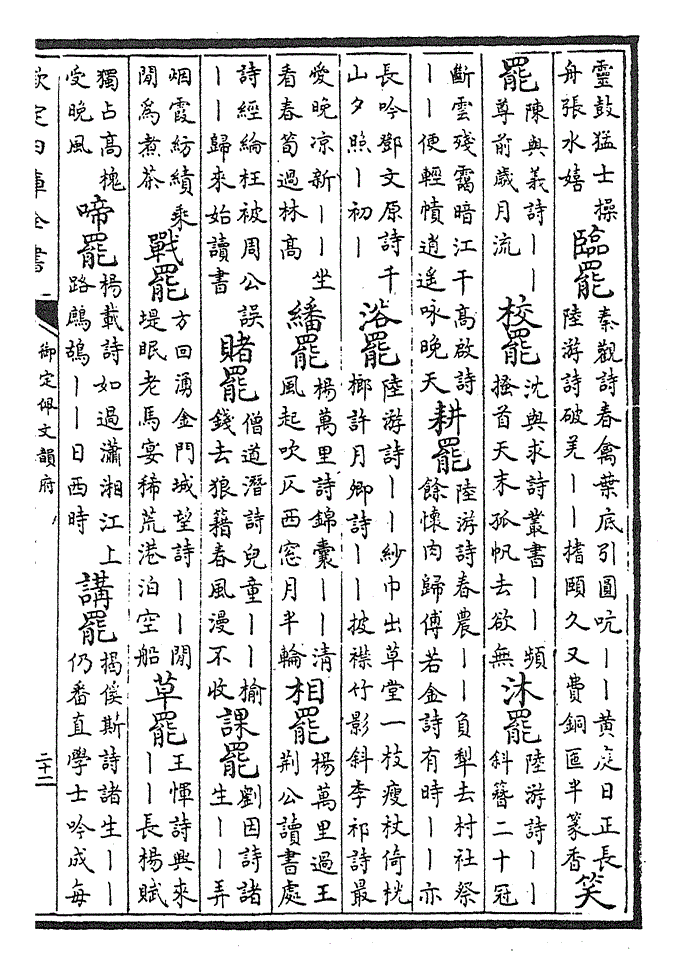 靈鼓猛士操
舟張水嬉
臨罷
秦觀詩春禽葉底引圓吭丨丨黃庭日正長
陸游詩破羌丨丨搘頤久又費銅匜半篆香
笑
罷
陳與義詩丨丨
尊前歲月流
校罷
沈與求詩叢書丨丨頻
搔首天末孤帆去欲無
沐罷
陸游詩丨丨
斜簪二十冠
斷雲殘靄暗江干高啟詩
丨丨便輕幘逍遙咏晚天
耕罷
陸游詩春農丨丨負犁去村社祭
餘懷肉歸傅若金詩有時丨丨亦
長吟鄧文原詩千
山夕照丨初丨
浴罷
陸游詩丨丨紗巾出草堂一枝瘦杖倚桄
榔許月卿詩丨丨披襟竹影斜李祁詩最
愛晚凉新丨丨坐
看春筍過林高
繙罷
楊萬里詩錦囊丨丨清
風起吹仄西窓月半輪
相罷
楊萬里過王
荆公讀書處
詩經綸枉被周公誤
丨丨歸來始讀書
賭罷
僧道潛詩兒童丨丨榆
錢去狼籍春風漫不收
課罷
劉因詩諸
生丨丨弄
烟霞紡績乘
閒爲煮茶
戰罷
方回湧金門城望詩丨丨閒
堤眠老馬宴稀荒港泊空船
草罷
王惲詩興來
丨丨長楊賦
獨占高槐
受晚風
啼罷
楊載詩如過瀟湘江上
路鷓鴣丨丨日西時
講罷
揭傒斯詩諸生丨丨
仍番直學士吟成每
欽定四庫全書
御定佩文韻府
二十二